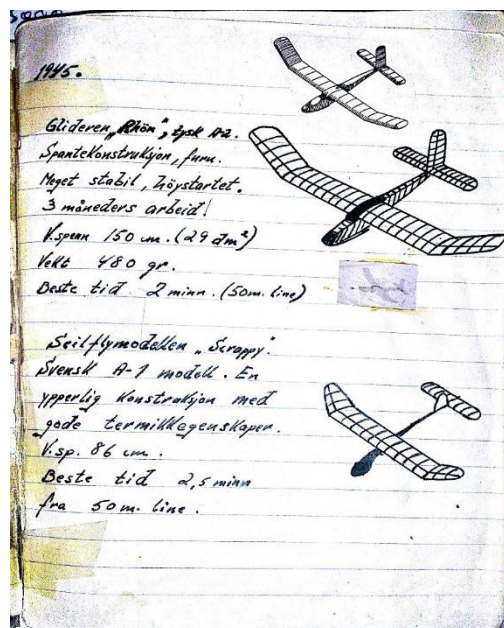 1945.
Glideren „Rhön", tysk A-2.
Spantekonstruksjon, furu.
Meget stabil, höystartet.
3 måneders arbeid!
V.spenn 150 cm. (29 dm²)
Vekt 480 gr.
Beste tid 2 minn. (50m. line)
Seilflymodellen „Scrappy".
Svensk A-1 modell. En
ypperlig konstruksjon med
gode termikkegenskaper.
V.sp. 86 cm.
Beste tid 2,5 minn
fra 50 m. line.